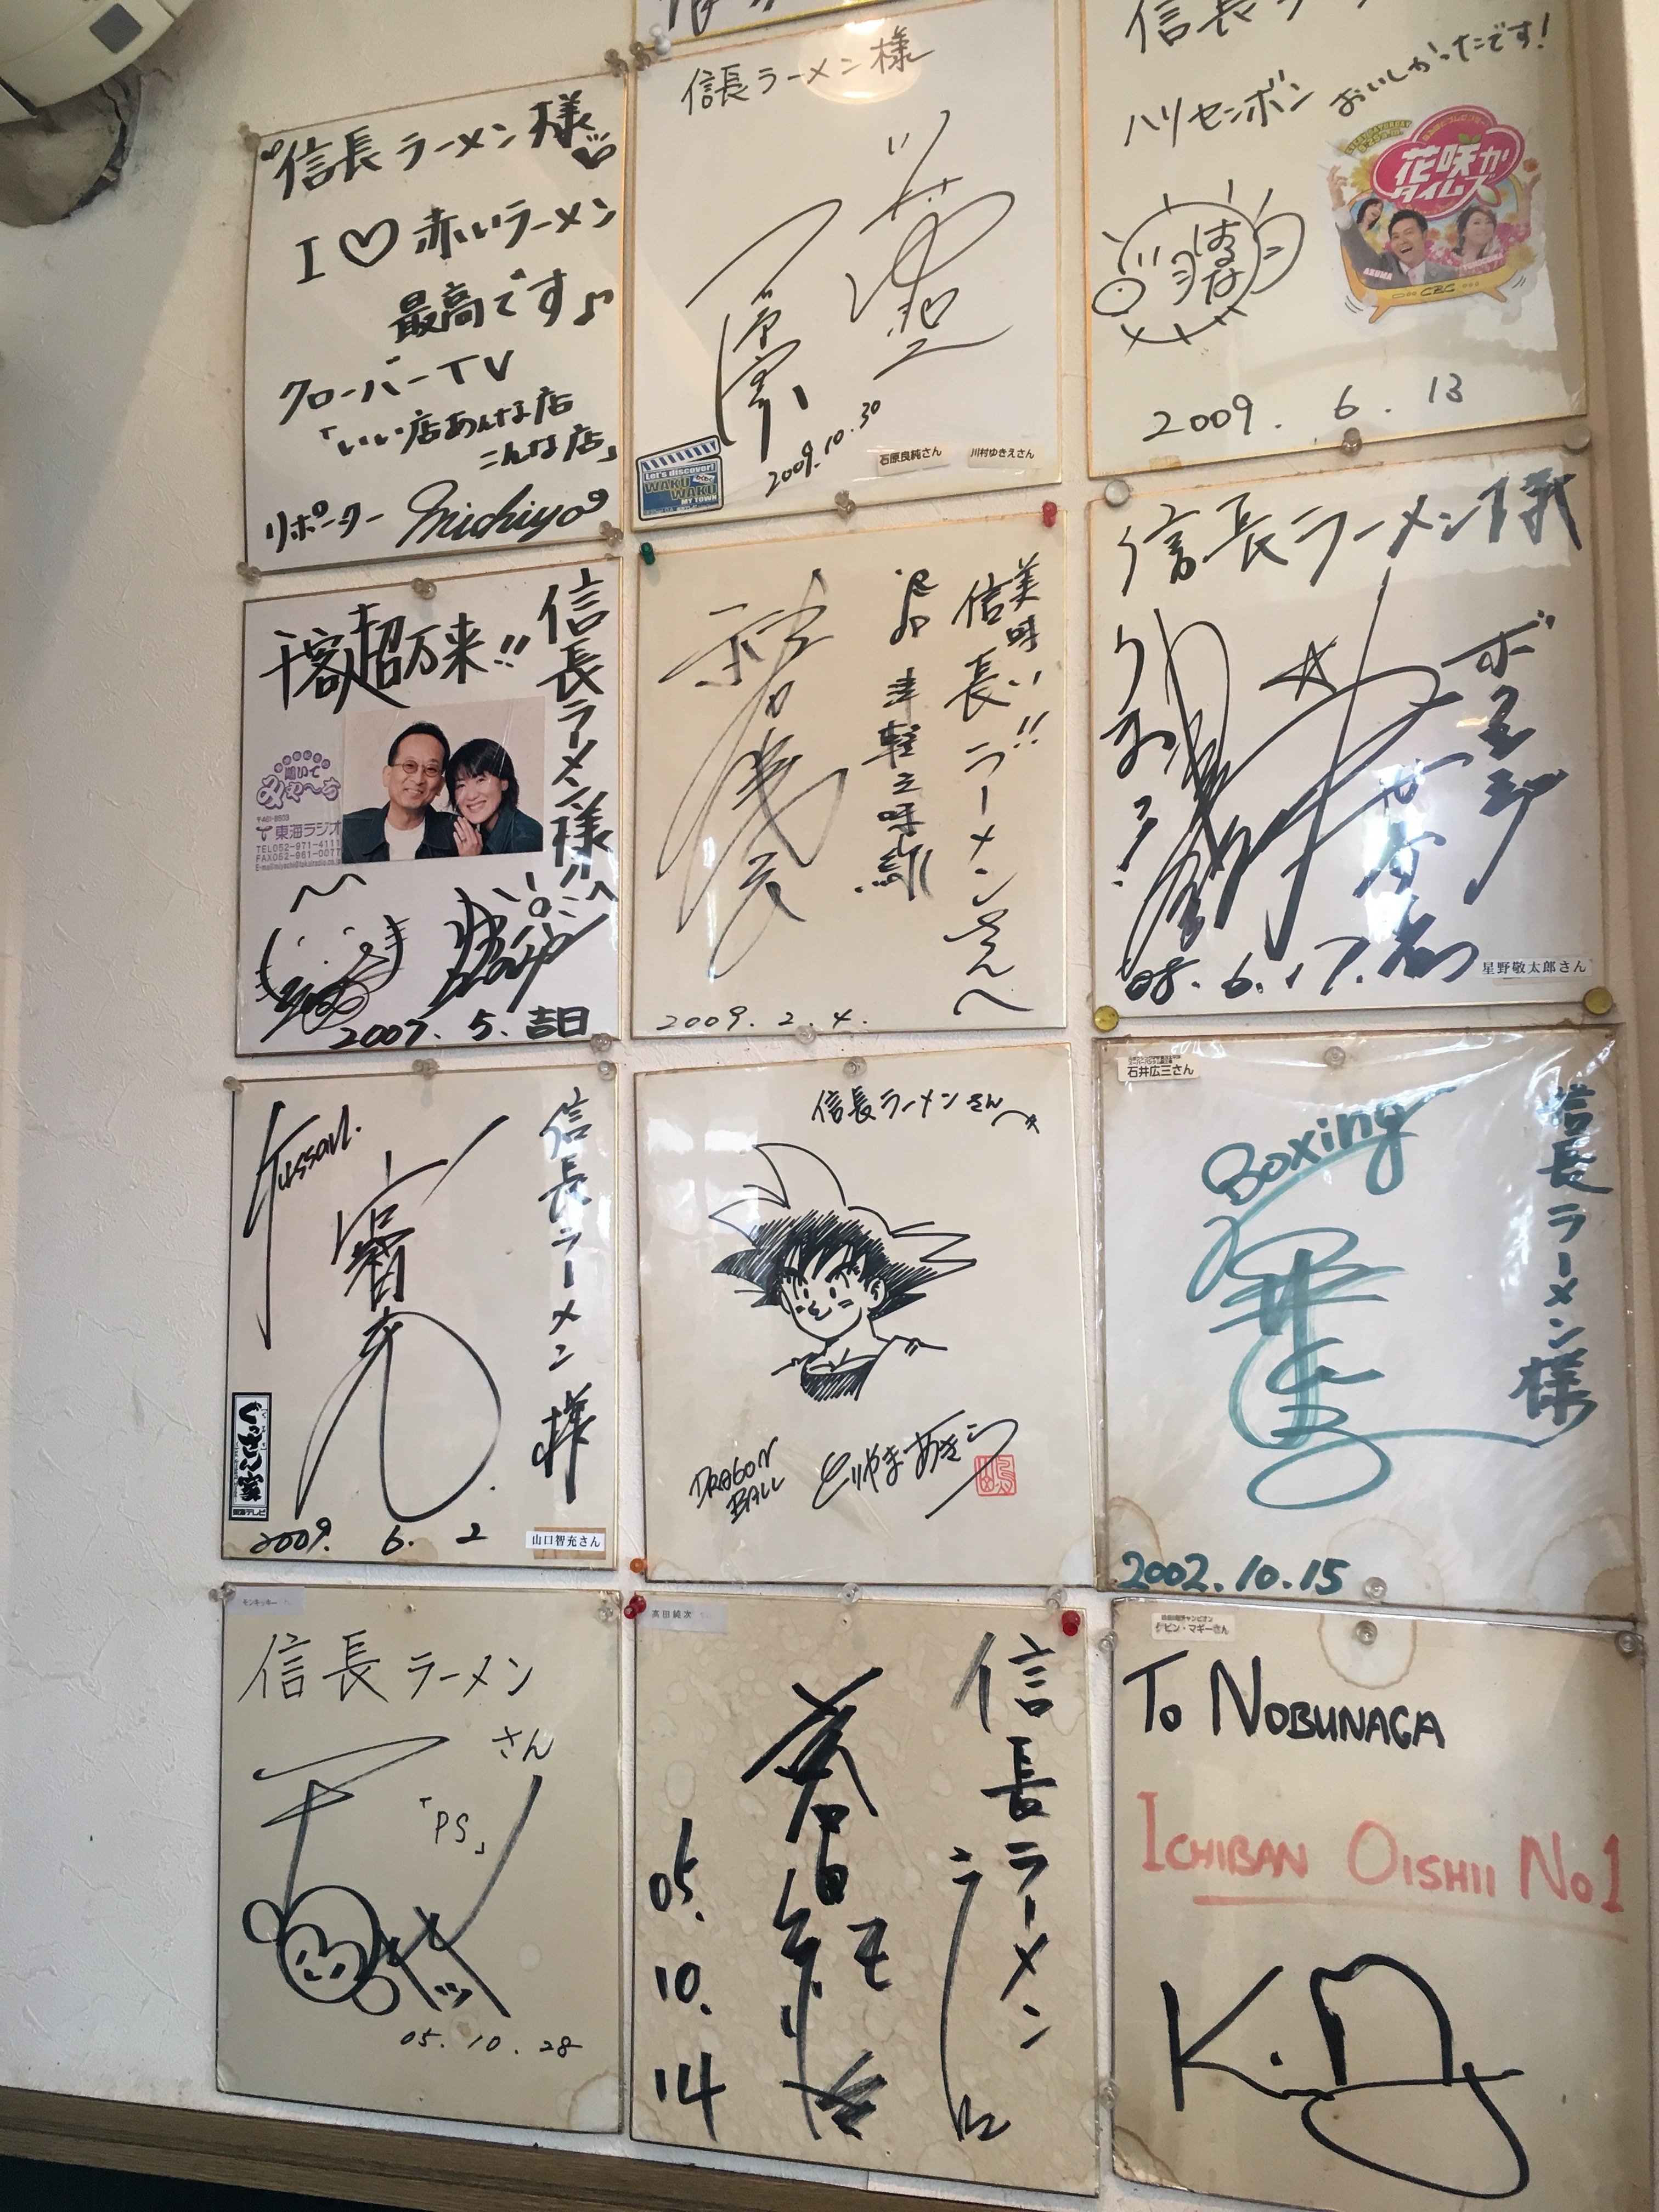 信長ラーメン様
I ♡ 赤いラーメン
最高です♪
クローバーTV
「いい店あんな店
こんな店」
リポーター Michiyo
信長ラーメン様
2009.10.30
Let's discover!
WAKU
WAKU
MY TOWN
石原良純さん
川村ゆきえさん
信長ラーメン
おいしかったです!
ハリセンボン
はるな
花咲か
タイムズ
ASUMA
CBC
2009. 6. 13
信長ラーメン様
千客超万来!!
聞いて
み〜よ〜
東海ラジオ
TEL052-971-4111
FAX052-961-0077
2007. 5. 吉日
美味い!!
信長ラーメンさんへ
津軽三味線
2009. 2. 4.
信長ラーメン様
ボクシング
うまい!
08. 6. 17.
星野敬太郎さん
信長ラーメン様
Gussan.
山口智充
ぐっさん家
東海テレビ
2009. 6. 2
山口智充さん
信長ラーメンさんへ
DRAGON
BALL
とりやまあきら
石井広三さん
信長ラーメン様
Boxing
2002.10.15
モンキッキー
信長ラーメン
さん
「PS」
05.10.28
高田純次
信長ラーメン
05.
10.
14
ケビン・マギーさん
To NOBUNAGA
ICHIBAN OISHII No1